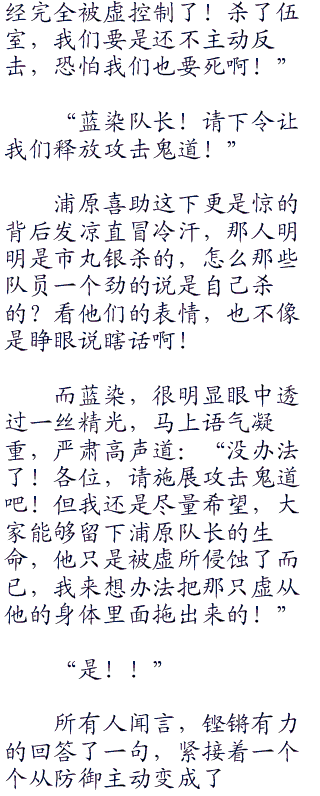 经完全被虚控制了！杀了伍
室，我们要是还不主动反
击，恐怕我们也要死啊！”
“蓝染队长！请下令让
我们释放攻击鬼道！”
浦原喜助这下更是惊的
背后发凉直冒冷汗，那人明
明是市丸银杀的，怎么那些
队员一个劲的说是自己杀
的？看他们的表情，也不像
是睁眼说瞎话啊！
而蓝染，很明显眼中透
过一丝精光，马上语气凝
重，严肃高声道：“没办法
了！各位，请施展攻击鬼道
吧！但我还是尽量希望，大
家能够留下浦原队长的生
命，他只是被虚所侵蚀了而
已，我来想办法把那只虚从
他的身体里面拖出来的！”
“是！！”
所有人闻言，铿锵有力
的回答了一句，紧接着一个
个从防御主动变成了